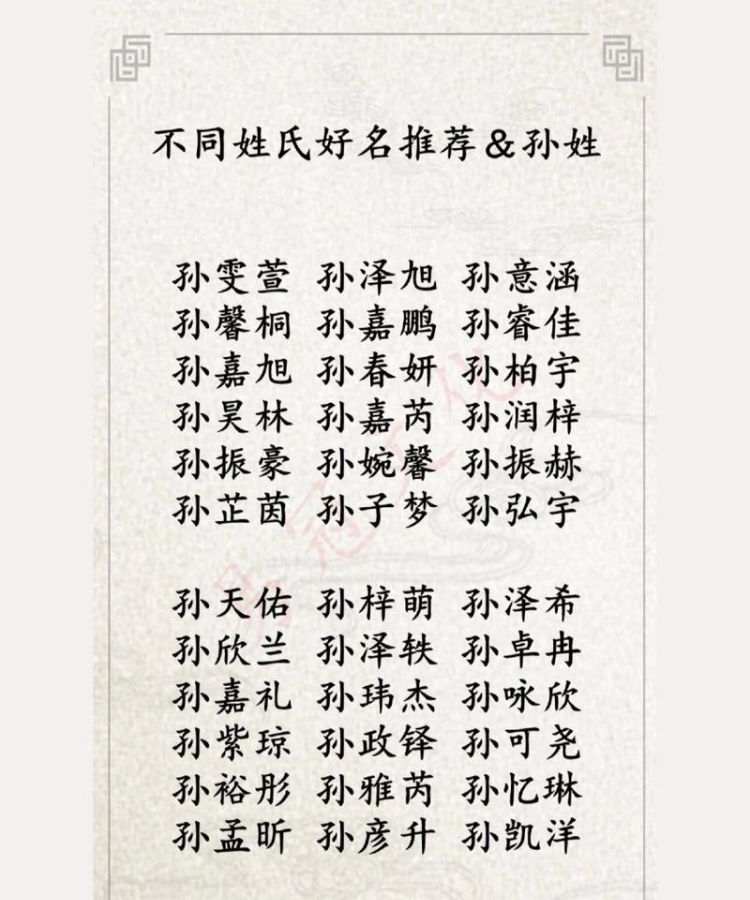 不同姓氏好名推荐&孙姓
孙雯萱 孙泽旭 孙意涵
孙馨桐 孙嘉鹏 孙睿佳
孙嘉旭 孙春妍 孙柏宇
孙昊林 孙嘉芮 孙润梓
孙振豪 孙婉馨 孙振赫
孙芷茵 孙子梦 孙弘宇
孙天佑 孙梓萌 孙泽希
孙欣兰 孙泽轶 孙卓冉
孙嘉礼 孙玮杰 孙咏欣
孙紫琼 孙政铎 孙可尧
孙裕彤 孙雅芮 孙忆琳
孙孟昕 孙彦升 孙凯洋